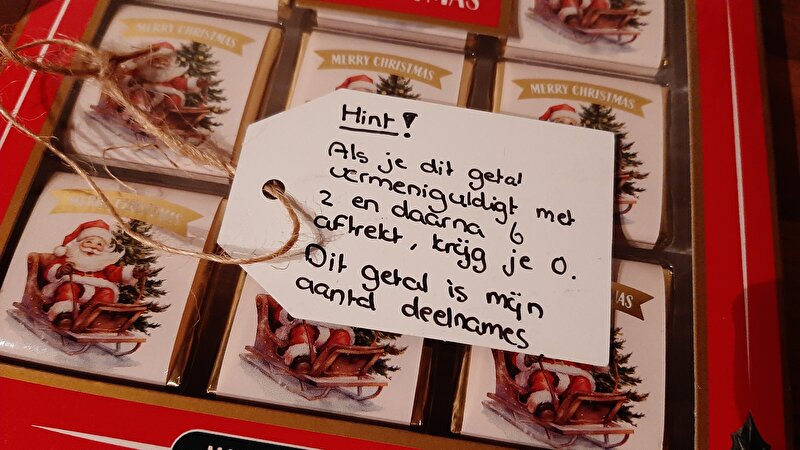 MERRY CHRISTMAS
MERRY CHRISTMAS
MERRY CHRISTMAS
MERRY CHRISTMAS
Hint!
Als je dit getal
vermenigvuldigt met
2 en daarna 6
aftrekt, krijg je 0.
Dit getal is mijn
aantal deelnames